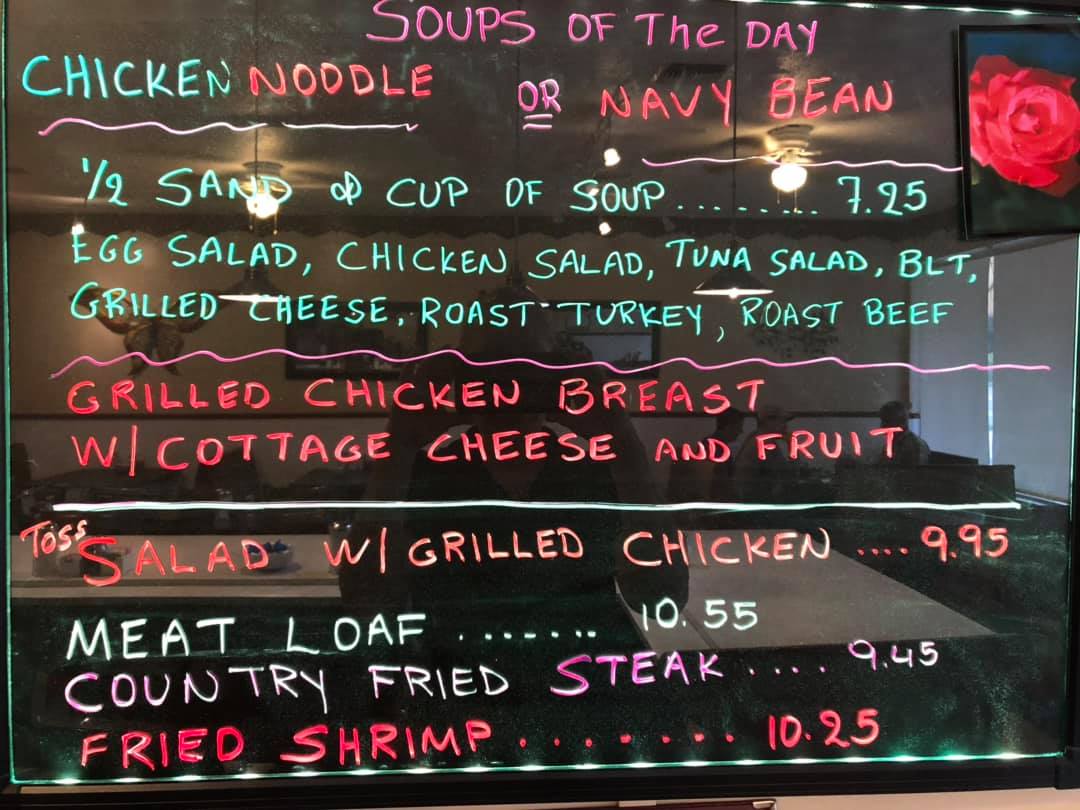 SOUPS OF The DAY
CHICKEN NOODLE OR NAVY BEAN
1/2 SAND & CUP OF SOUP........ 7.25
EGG SALAD, CHICKEN SALAD, TUNA SALAD, BLT,
GRILLED CHEESE, ROAST TURKEY, ROAST BEEF
GRILLED CHICKEN BREAST
W/ COTTAGE CHEESE AND FRUIT
TOSS SALAD W/ GRILLED CHICKEN .... 9.95
MEAT LOAF ....... 10.55
COUNTRY FRIED STEAK .... 9.45
FRIED SHRIMP ....... 10.25